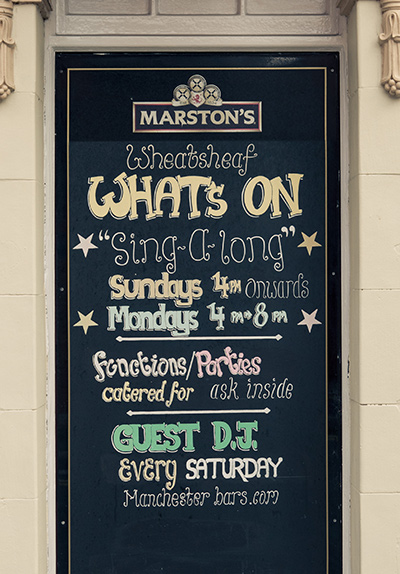 MARSTON'S
Wheatsheaf
WHAT's ON
"Sing-A-long"
Sundays 4PM Onwards
Mondays 4 PM → 8 PM
functions/Parties
catered for ask inside
GUEST D.J.
EVERY SATURDAY
Manchester bars.com